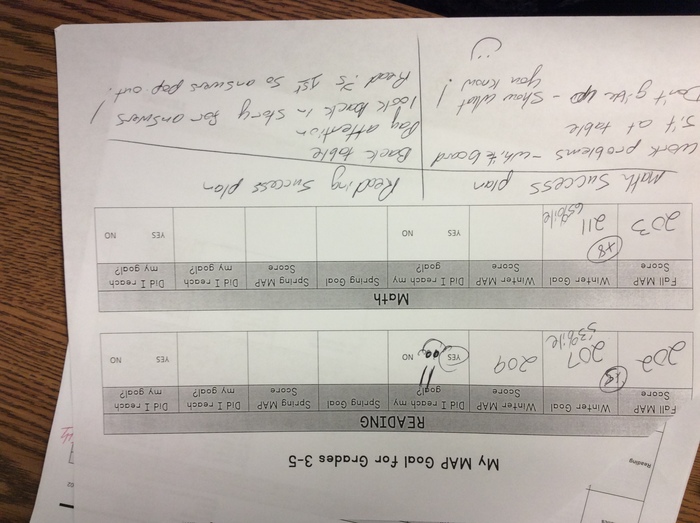 My MAP Goal for Grades 3-5
READING
Fall MAP Score Winter Goal Winter MAP Score Did I reach my goal? Spring Goal Spring MAP Score Did I reach my goal? Did I reach my goal?
202 207 53%ile 209 YES NO YES NO
Math
Fall MAP Score Winter Goal Winter MAP Score Did I reach my goal? Spring Goal Spring MAP Score Did I reach my goal? Did I reach my goal?
203 +8 211 65%ile YES NO YES NO
Math Success plan
Work problems - white board
Sit at table
Don't give up - show what
you know!
Reading Success plan
Back table
Pay attention
look back in story for answers
Read ?'s 1st so answers pop out!
Reading